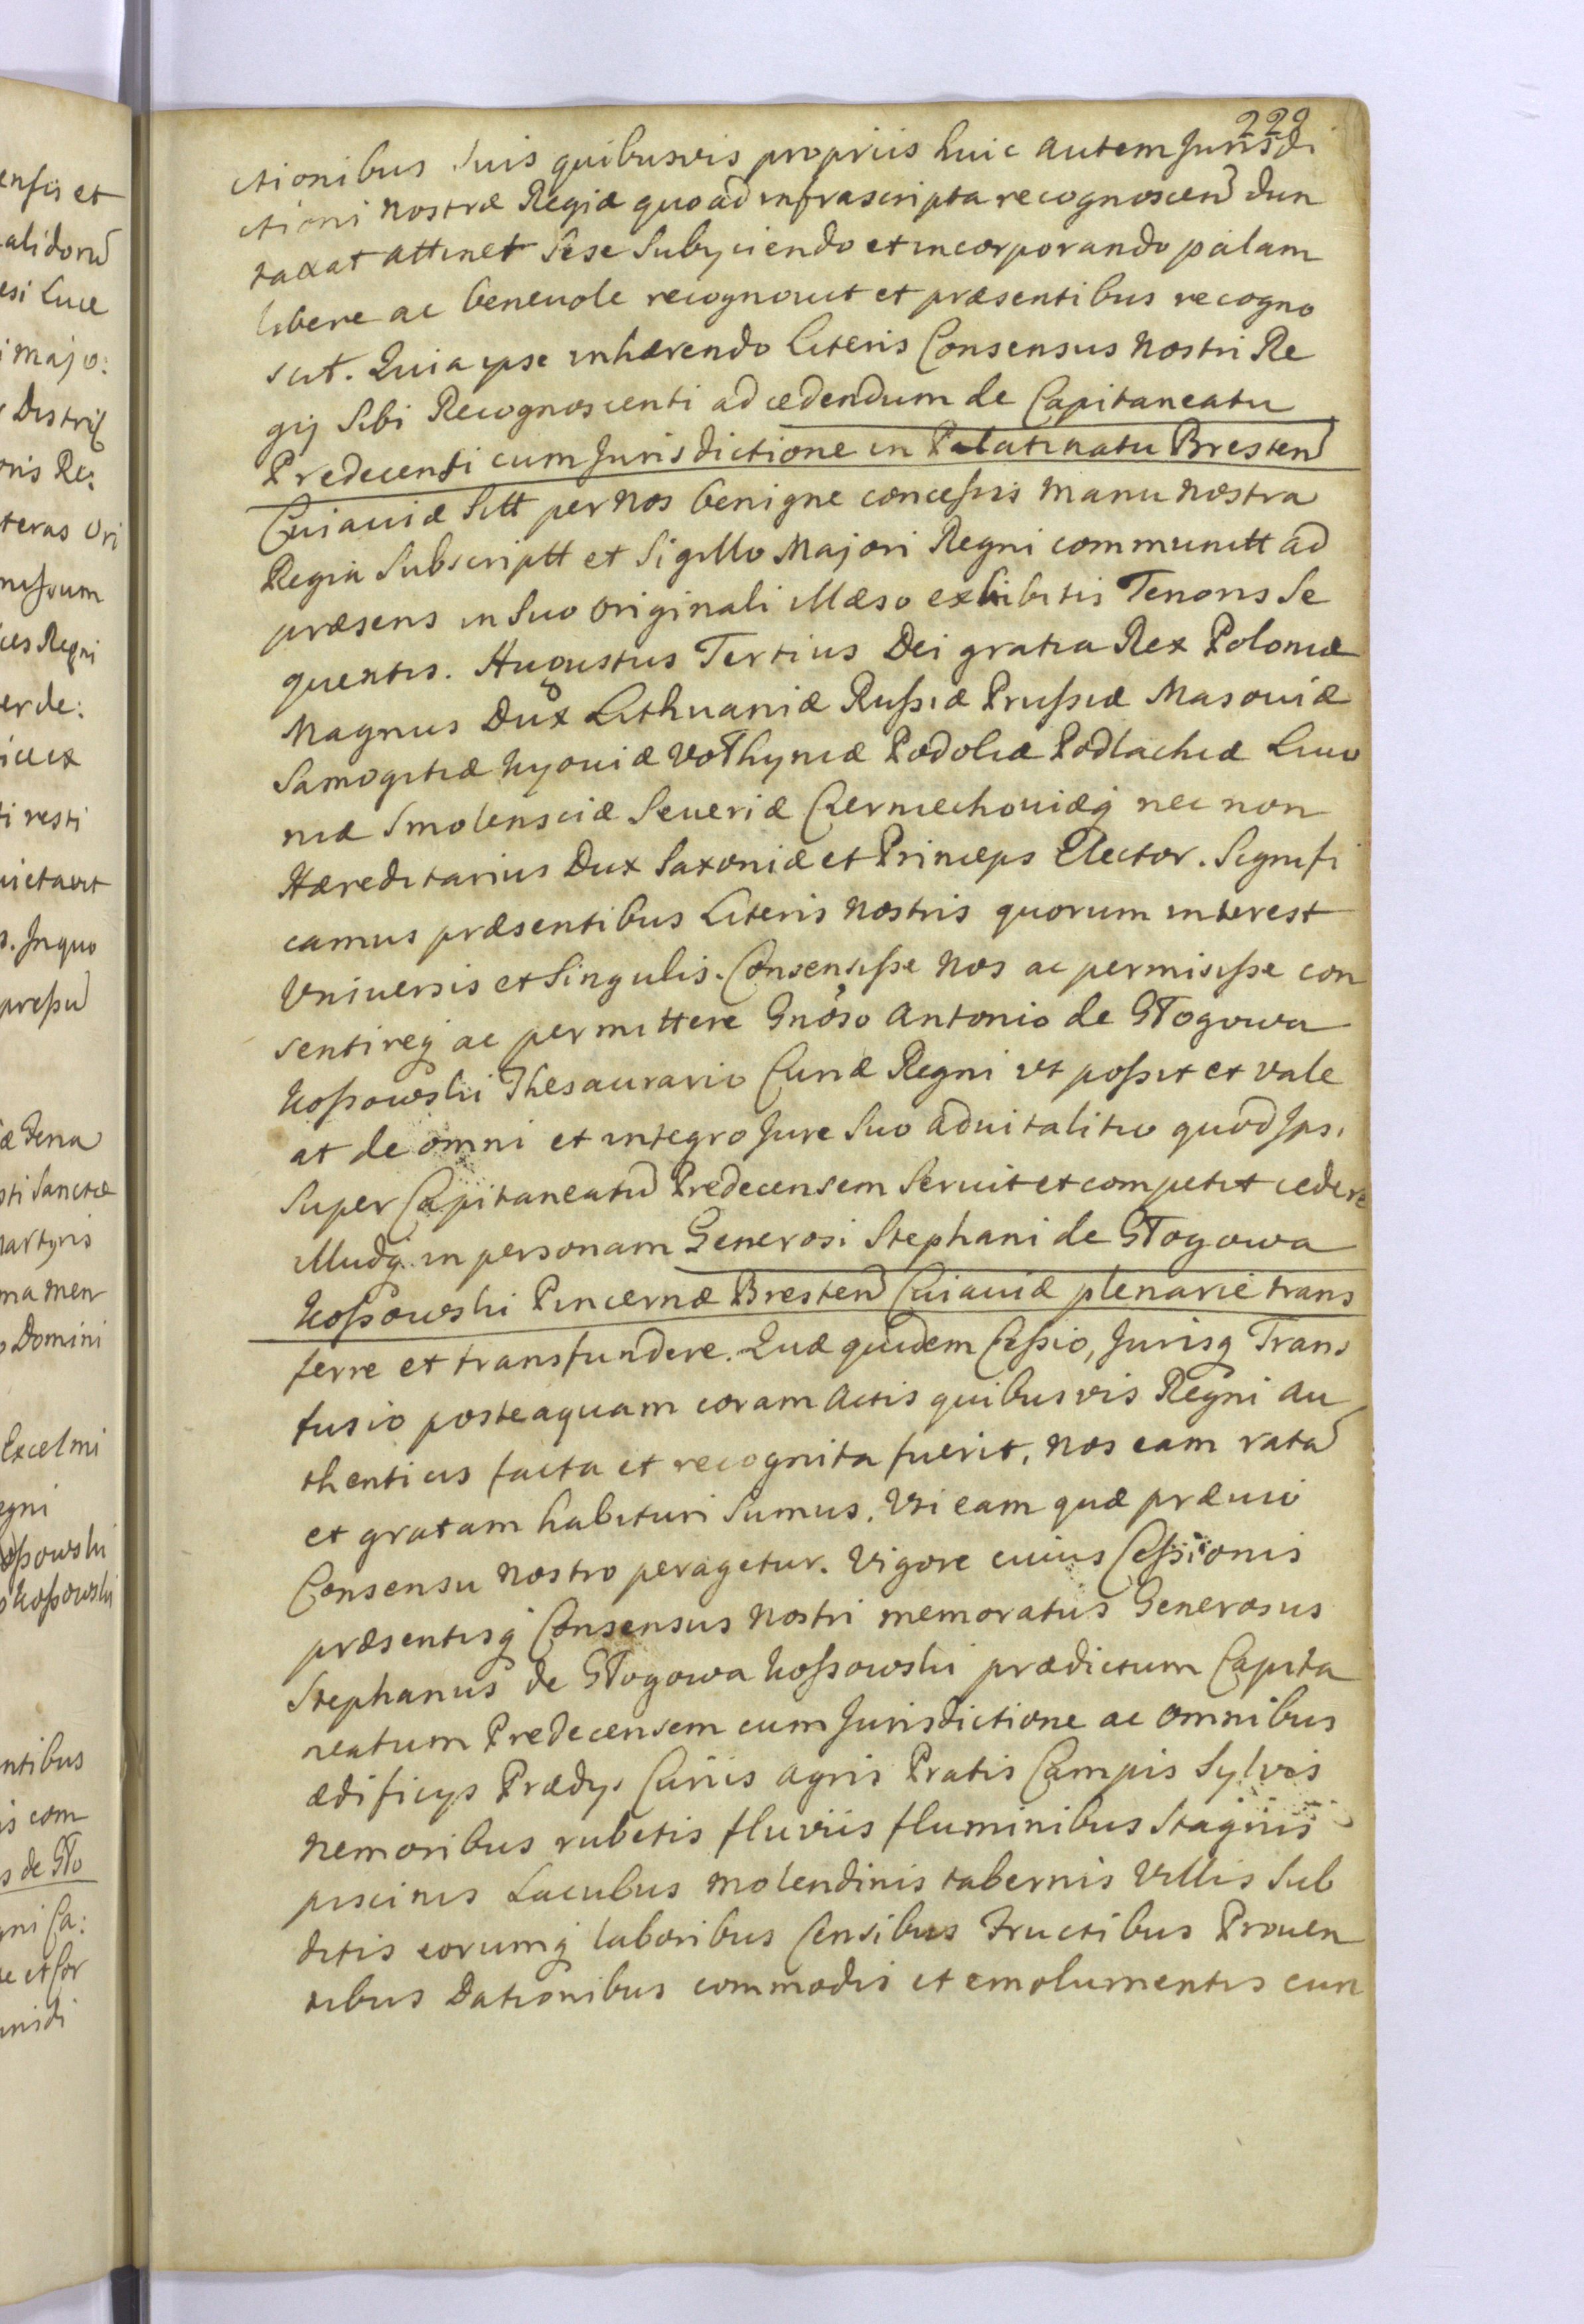 229
ctionibus suis quibusvis propriis huic autem Jurisdi
ctioni nostræ Regiæ quo ad infrascripta recognoscend dun
taxat attinet sese subyciendo et incorporando palam
libere ac beneuole recognouit et præsentibus recogno
scit. Quia ipse inhærendo Literis Consensus nostri Re
gij Sibi Recognoscenti ad cedendum de Capitaneatu
Predecensi cum Jurisdictione in Palatinatu Bresten
Cuiauiæ Sitt per nos benigne concessis manu nostra
Regia Subscriptt et Sigillo Majori Regni communitt ad
præsens in suo originali illæso exhibitis Tenoris Se
quentis. Augustus Tertius Dei gratia Rex Poloniæ
Magnus Dux Lithuaniæ Russiæ Prussiæ Masouiæ
Samogitiæ Kyouiæ Volhyniæ Podoliæ Podlachiæ Liuo
niæ Smolensciæ Seueriæ Czerniechouiæq nec non
Hæreditarius Dux Saxoniæ et Princeps Elector. Signifi
camus præsentibus Literis nostris quorum interest
Vniuersis et Singulis. Consensisse nos ac permisisse con
sentireq ac permittere Gnoso Antonio de Głogowa
Kossowski Thesaurario Curiæ Regni vt possit et vale
at de omni et integro Jure Suo aduitalitio quod Ipsi
Super Capitaneatu Predecensem Seruit et competit cedere
Illudq in personam Generosi Stephani de Głogowa
Kossowski Pincernæ Bresten Cuiauiæ plenarie trans
ferre et transfundere. Quæ quidem Cessio, Jurisq Trans
fusio posteaquam coram Actis quibusvis Regni au
thenticis facta et recognita fuerit, nos eam rata
et gratam habituri Sumus, Vti eam quæ præuio
Consensu nostro peragetur. Vigore cuius Cessionis
præsentisq Consensus nostri memoratus Generosus
Stephanus de Głogowa Kossowski prædictum Capita
neatum Predecensem cum Jurisdictione ac omnibus
ædificys Prædys Curiis agris Pratis Campis Sylvis
nemoribus rubetis fluviis fluminibus Stagnis
piscinis Lacubus molendinis tabernis Villis Sub
ditis eorumq laboribus Censibus Fructibus Prouen
tibus Dationibus commodis et emolumentis cun